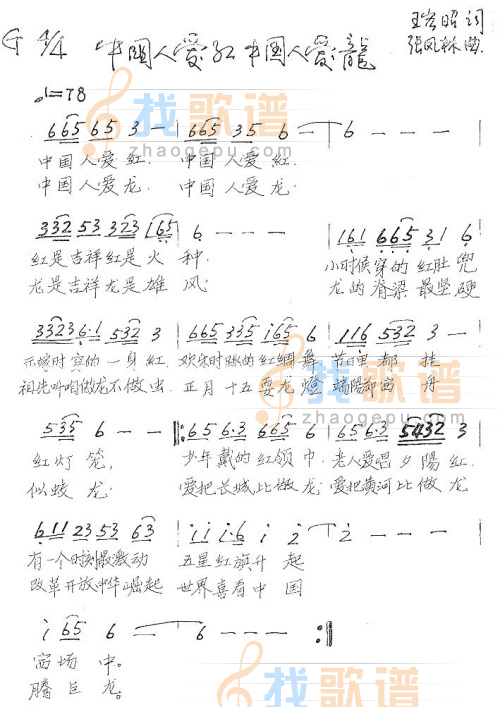 G 4/4 中国人爱红中国人爱龍
王宏昭 词
张风林 曲
♩=78
找歌谱
zhaogepu.com
665 65 3 — | 665 35 6 — | 6 — — —
中国人爱红. 中国人爱红.
中国人爱龙. 中国人爱龙.
332 53 323 165 | 6 — — — | 161 665 31 6
红是吉祥红是火种. 小时候穿的红肚兜
龙是吉祥龙是雄风. 龙的脊梁最坚硬
3323 6·1 532 3 | 665 335 i65 6 | 116 532 3 — |
时穿的一身红. 欢乐时跳的红绸舞 节日里都挂
祖先叫咱做龙不做虫. 正月十五耍龙燈 端陽都 舟
找歌谱
zhaogepu.com
535 6 — — |: 656·3 665 6 | 656·3 5432 3
红灯笼, 少年戴的红领巾. 老人爱唱夕陽红.
似蛟龙. 爱把长城比做龙 爱把黄河比做龙
611 23 53 63 | i i i·6 i 2 | 2 — — —
有一个时刻最激动 五星红旗升起
改革开放中华崛起 世界喜看中国
i 65 6 — 6 — — — :|
场中。
腾巨龙。
找歌谱